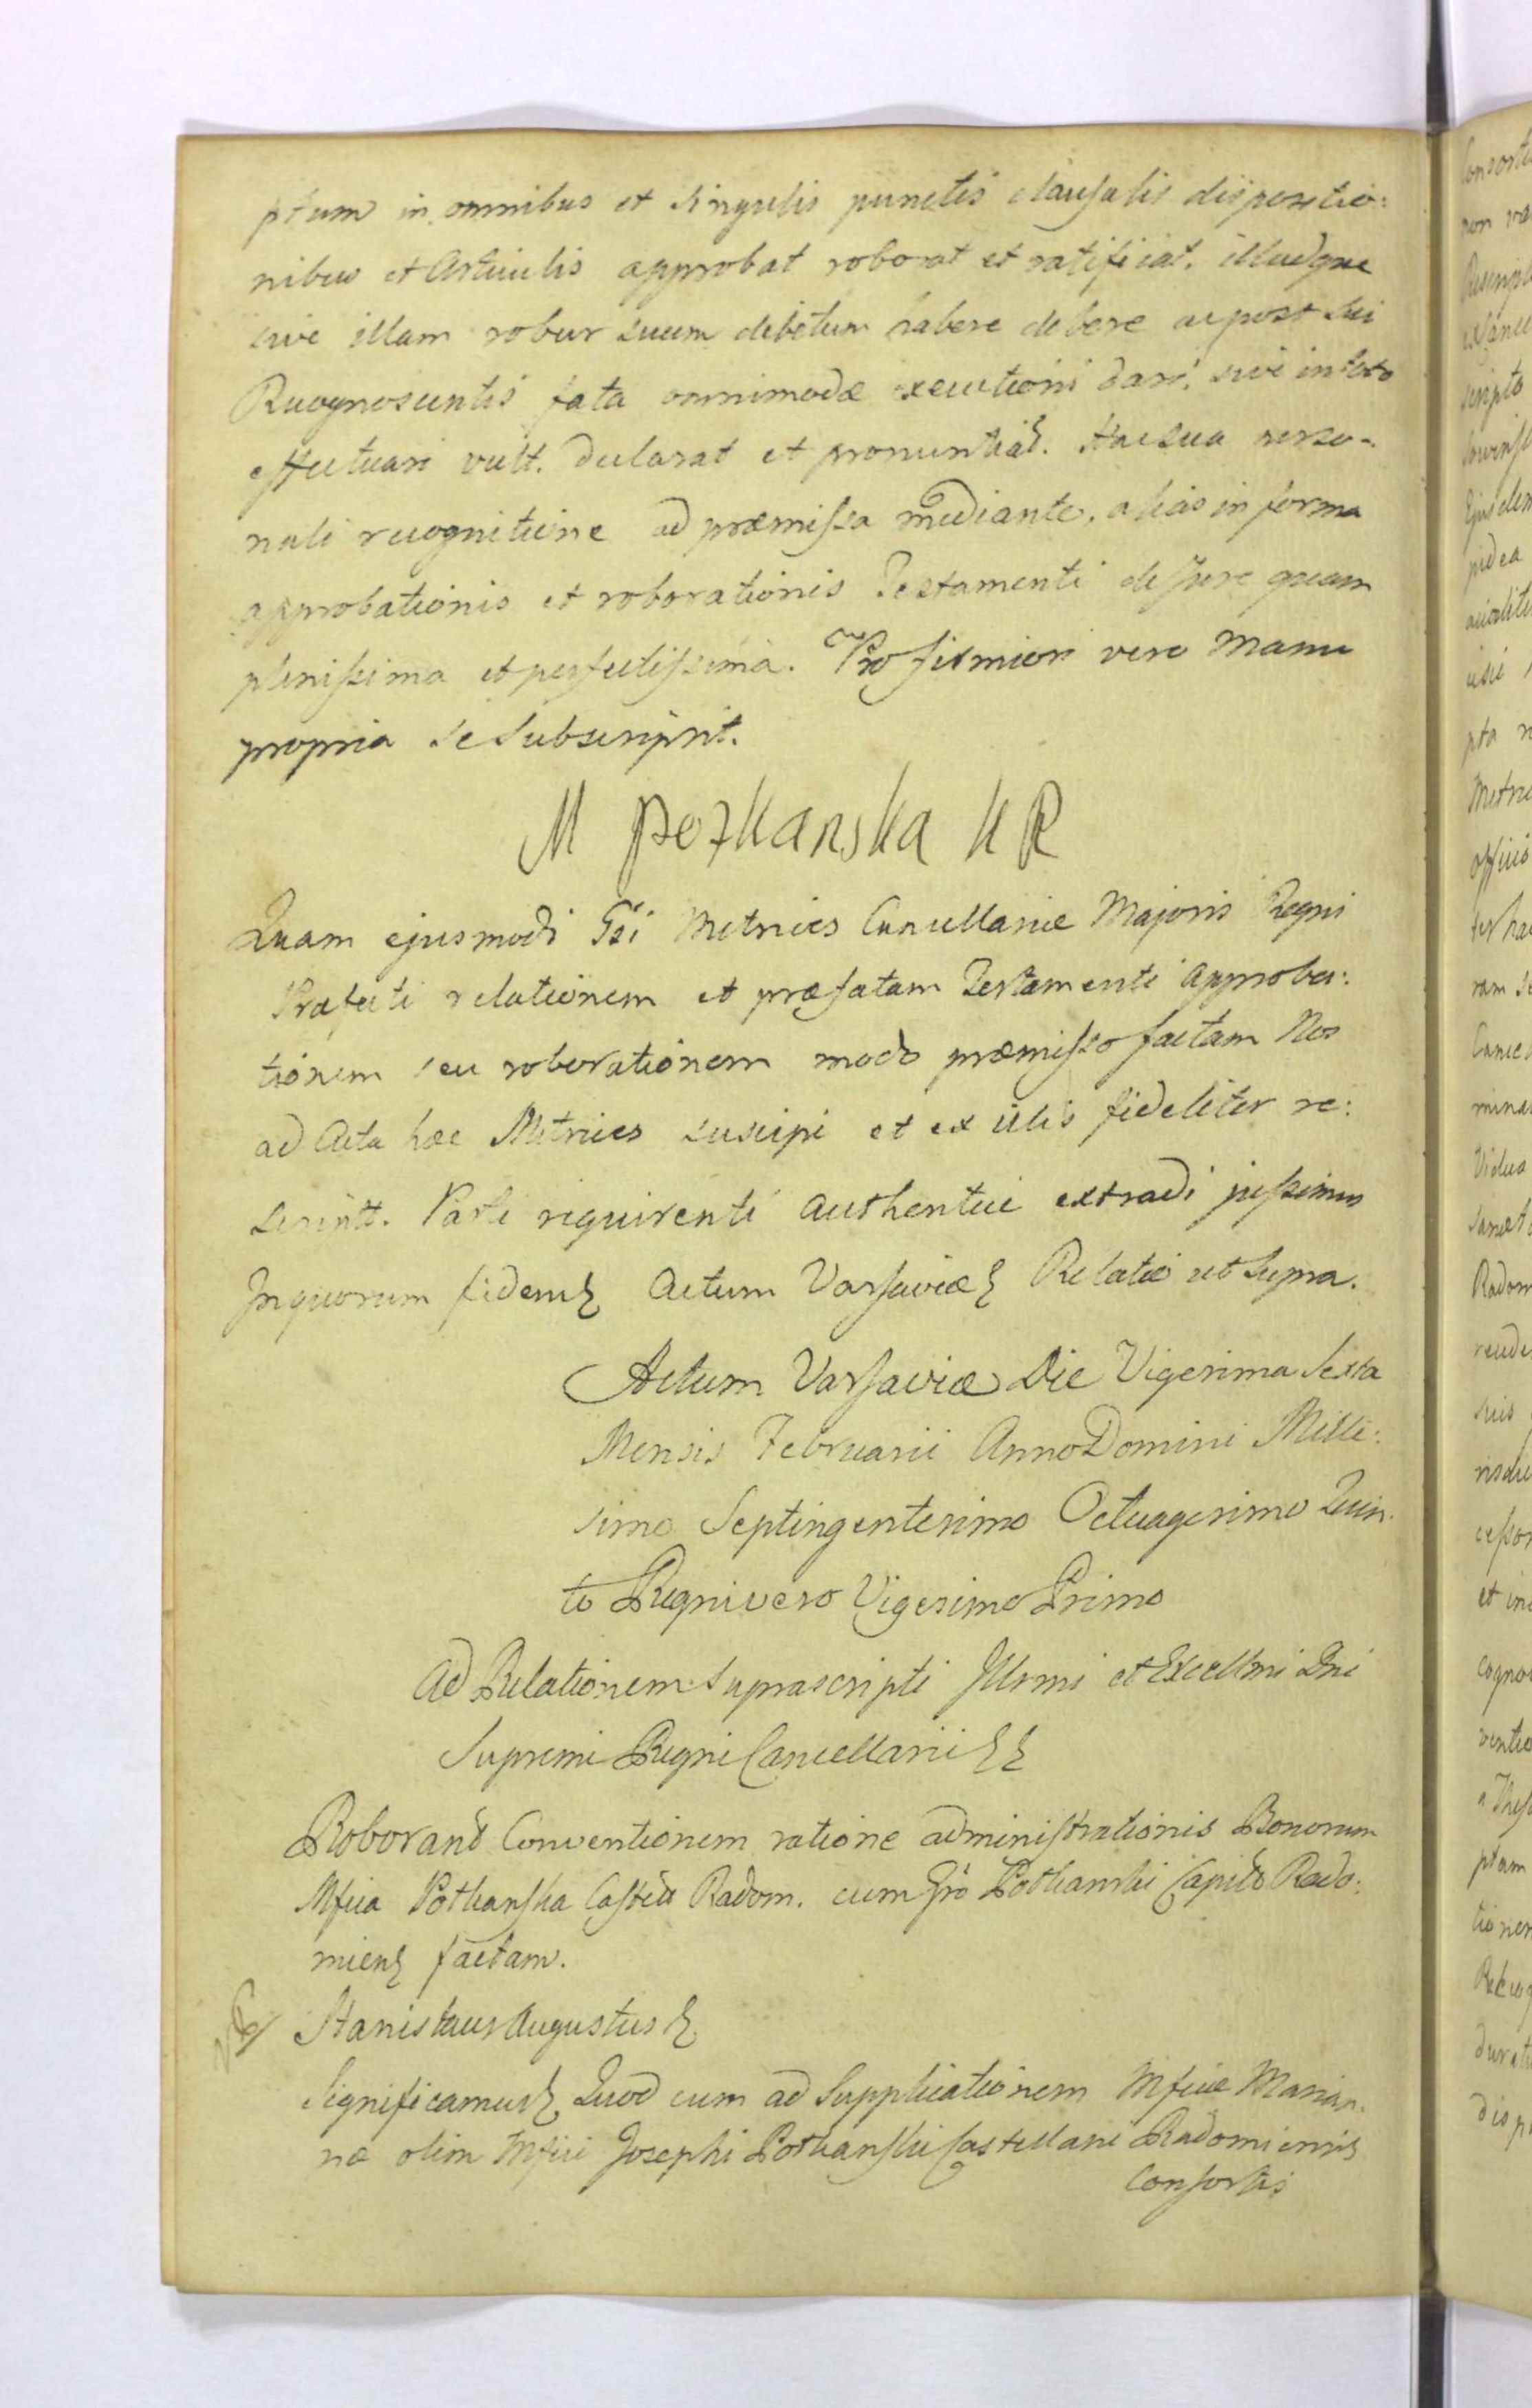 ptum in omnibus et singulis punctis clausulis dispositio:
nibus et Articulis approbat roborat et ratificat. illudque
sive illam robur suum debitum habere debere ac post sui
Recognoscentis fata omnimodæ executioni dari, sive in toto
effectuari vult. declarat et pronuntiat. Hac sua perso-
nali recognitione ad præmissa mediante, alias in forma
approbationis et roborationis Testamenti de Jure quam
plenissima et perfectissima. Pro firmiori vero Manu
propria se subscripsit.
M Potkanska K R
Quam ejusmodi Gsi Metrices Cancellariæ Majoris Regni
Præfecti relationem et præfatam Testamenti approba:
tionem seu roborationem modo præmisso factam Nos
ad Acta hæc Metrices suscipi et ex illis fideliter re:
script. Parti requirenti authentice extradi jussimus
In quorum fidem Actum Varsaviæ Relatio ut supra.
Actum Varsaviæ Die Vigesima Sexta
Mensis Februarii Anno Domini Mille:
simo Septingentesimo Octuagesimo Quin.
to Regni vero Vigesimo Primo
Ad Relationem suprascripti Illrmi et Excellmi Dni
Supremi Regni Cancellarii
Roborant Conventionem ratione administrationis Bonorum
Mfica Potkanska Castell Radom. cum Gso Potkanski Capito Rado:
miens factam.
Stanislaus Augustus
Significamus Quod cum ad Supplicationem Mficæ Marian.
næ olim Mfici Josephi Potkanski Castellani Radomiensis
Consortis
Consorti
non
Radom